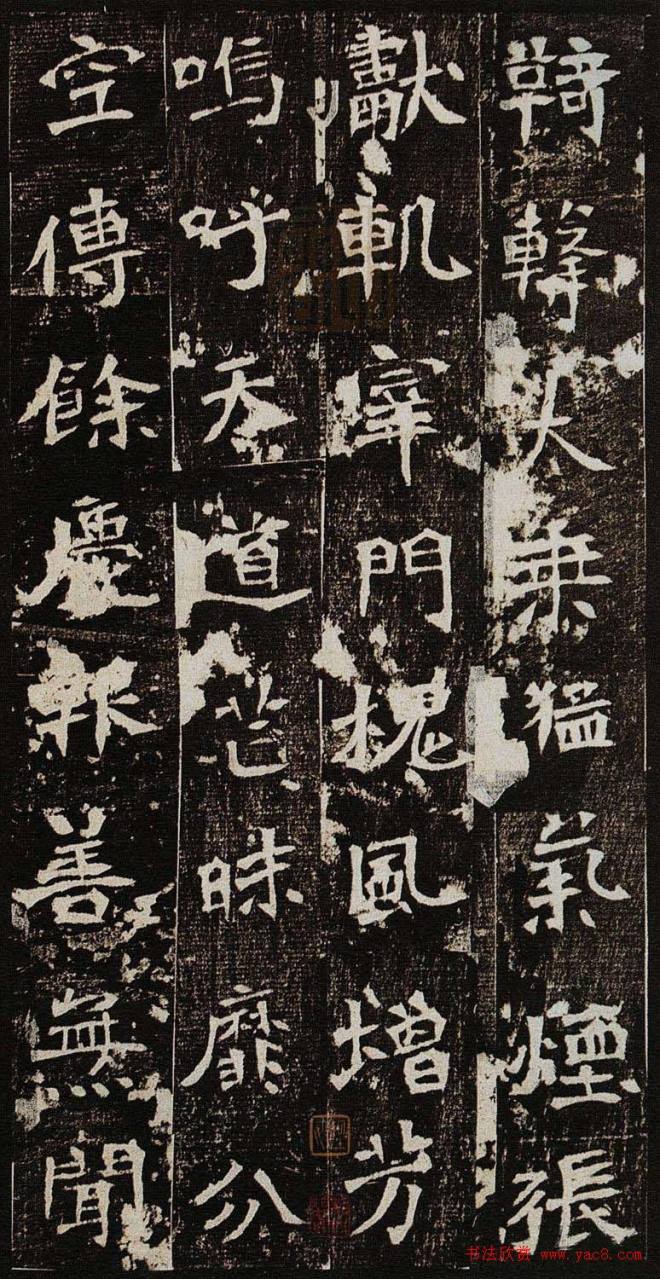 大乘猛氣煙張
軌宰門槐風增芳
嗚呼天道芒昧靡分
空傳餘慶報善無聞
书法欣赏 www.yac8.com